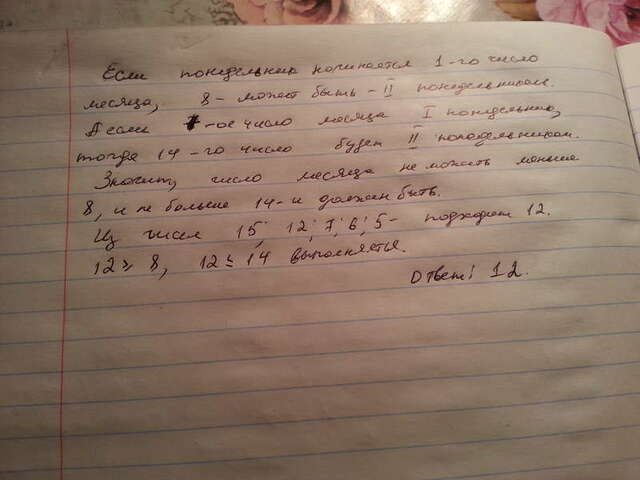 Если понедельник начинается 1-го число
месяца, 8 - может быть - II понедельником.
А если 7-ое число месяца I понедельник,
тогда 14-го число будет II понедельником.
Значит, число месяца неможеть меньше
8, и не больше 14-и должен быть.
Из чисел 15; 12; 7; 6; 5 - подходит 12.
12 ≥ 8, 12 ≤ 14 выполняется.
Ответ: 12.